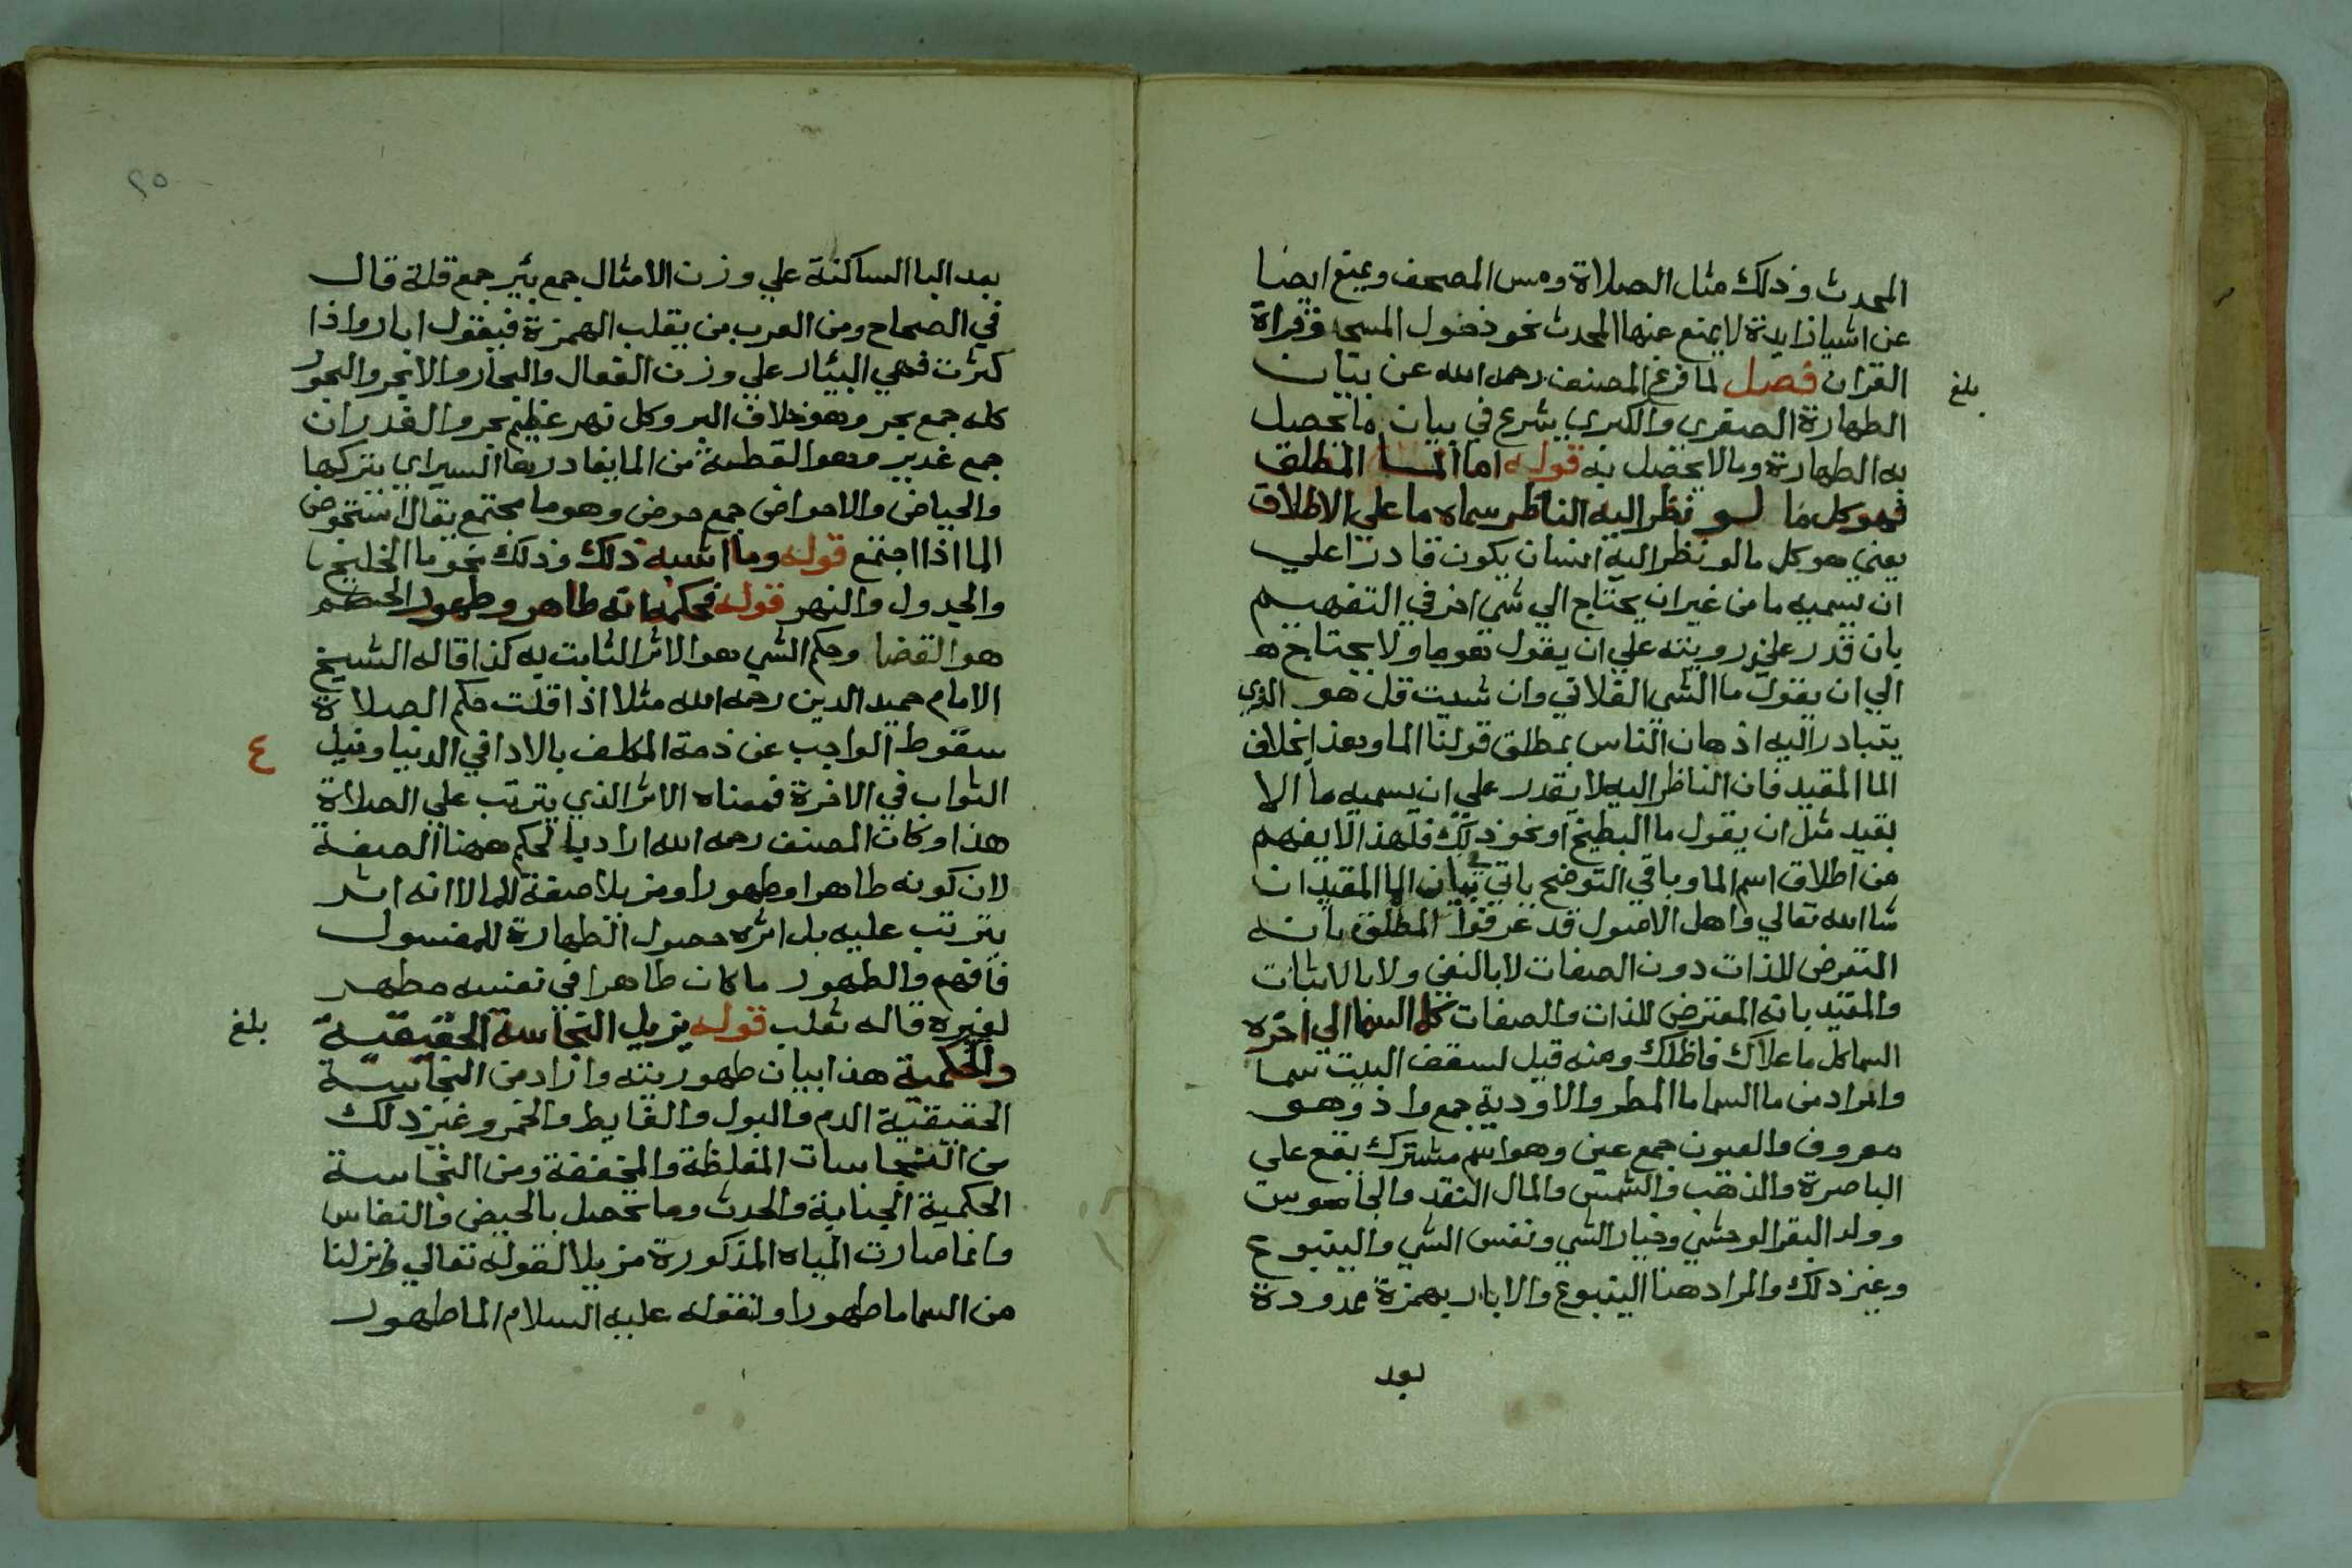 المحدث وذلك مثل الصلاة ومس المصحف ويمنع ايضا
عن اشيا زايدة لا يمنع عنها المحدث نحو دخول المسجد وقراة
القران فصل لما فرغ المصنف رحمه الله عن بيان
بلغ
الطهارة الصغري والكبري يشرع في بيان ما يحصل
به الطهارة وما لا يحصل به قوله اما الما المطلق
فهو كل ما لو نظر اليه الناظر سماه ما علي الاطلاق
يعني هو كل ما لو نظر اليه انسان يكون قادرا علي
ان يسميه ما من غير ان يحتاج الي شي اخر في التفهيم
بان قدر علي رويته علي ان يقول هو ما ولا يحتاج
الي ان يقول ما الشي الفلاني وان شيت قل هو الذي
يتبادر اليه اذهان الناس بمطلق قولنا الما وهذا بخلاف
الما المقيد فان الناظر اليه لا يقدر علي ان يسميه ما الا
بقيد مثل ان يقول ما البطيخ او نحو ذلك فلهذا لا يفهم
من اطلاق اسم الما وباقي التوضيح ياتي في بيان الما المقيد ان
شا الله تعالي واهل الاصول قد عرفوا المطلق بانه
المتعرض للذات دون الصفات لا بالنفي ولا بالاثبات
والمقيد بانه المتعرض للذات والصفات كما السما الي اخره
السما كل ما علاك فاظلك ومنه قيل لسقف البيت سما
والمراد من ما السما ما المطر والاودية جمع واد وهو
معروف والعيون جمع عين وهو اسم مشترك يقع علي
الباصرة والذهب والشمس والمال النقد والجاسوس
وولد البقر الوحشي وخيار الشي ونفس الشي والينبوع
وغير ذلك والمراد هنا الينبوع والابار بهمزة ممدودة
بعد
٢٥
بعد البا الساكنة علي وزن الامثال جمع بئر جمع قلة قال
في الصحاح ومن العرب من يقلب الهمزة فيقول ابار واذا
كثرت فهي البئار علي وزن الفعال والبحار والابحر والبحور
كله جمع بحر وهو خلاف البر وكل نهر عظيم بحر والغدران
جمع غدير وهو القطعة من الما يغادرها السيل اي يتركها
والحياض والاحواض جمع حوض وهو ما مجتمع يقال استحوض
الما اذا اجتمع قوله وما اشبه ذلك وذلك نحو ما الخليج
والجدول والنهر قوله فحكمه انه طاهر وطهور الحكم
هو القضا وحكم الشي هو الاثر الثابت به كذا قاله الشيخ
الامام حميد الدين رحمه الله مثلا اذا قلت حكم الصلاة
سقوط الواجب عن ذمة المكلف بالادا في الدنيا ونيل
٤
الثواب في الاخرة فمعناه الاثر الذي يترتب علي الصلاة
هذا وكان المصنف رحمه الله اراد بالحكم ههنا الصفة
لان كونه طاهرا وطهورا ومزيلا صفة للما لا انه اثر
يترتب عليه بل اثره حصول الطهارة للمغسول
فافهم والطهور ما كان طاهرا في نفسه مطهر
لغيره قاله ثعلب قوله يزيل النجاسة الحقيقية
بلغ
والحكمية هذا بيان طهوريته واراد من النجاسة
الحقيقية الدم والبول والغايط والخمر وغير ذلك
من النجاسات المغلظة والمخففة ومن النجاسة
الحكمية الجنابة والحدث وما يحصل بالحيض والنفاس
وانما صارت المياه المذكورة مزيلا لقوله تعالي وانزلنا
من السما ما طهورا ولقوله عليه السلام الما طهور